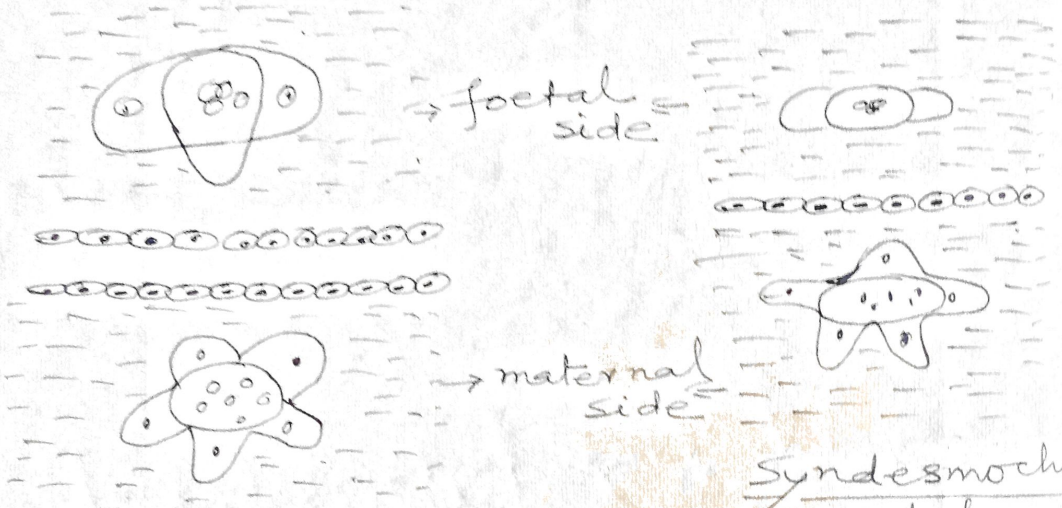 → foetal
side
→ maternal
side
Syndesmoch